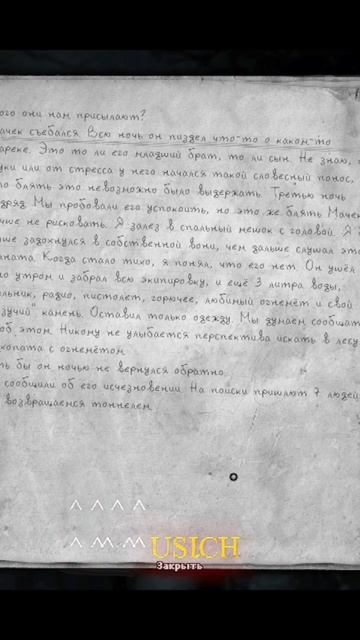 ого они нам присылают?
ачек съебался Всю ночь он пиздел что-то о каком-то
ареке. Это то ли его младший брат, то ли сын. Не знаю,
уки или от стресса у него начался такой словесный понос,
о блять это невозможно было выдержать. Третью ночь
одряд Мы пробовали его успокоить, но это же блять Мачек
чше не рисковать. Я залез в спальный мешок с головой. Я
ше задохнулся в собственной вони, чем дальше слушал это
ната. Когда стало тихо, я понял, что его нет. Он ушёл
о утром и забрал всю экипировку, и ещё 3 литра воды,
льник, радио, пистолет, горючее, любимый огнемёт и свой
зучий" камень. Оставил только одежду. Мы думаем сообщать
об этом. Никому не улыбается перспектива искать в лесу
хопата с огнемётом.
ть бы он ночью не вернулся обратно.
сообщили об его исчезновении. На поиски пришлют 7 людей
возвращаемся тоннелем.
USICH
Закрыть